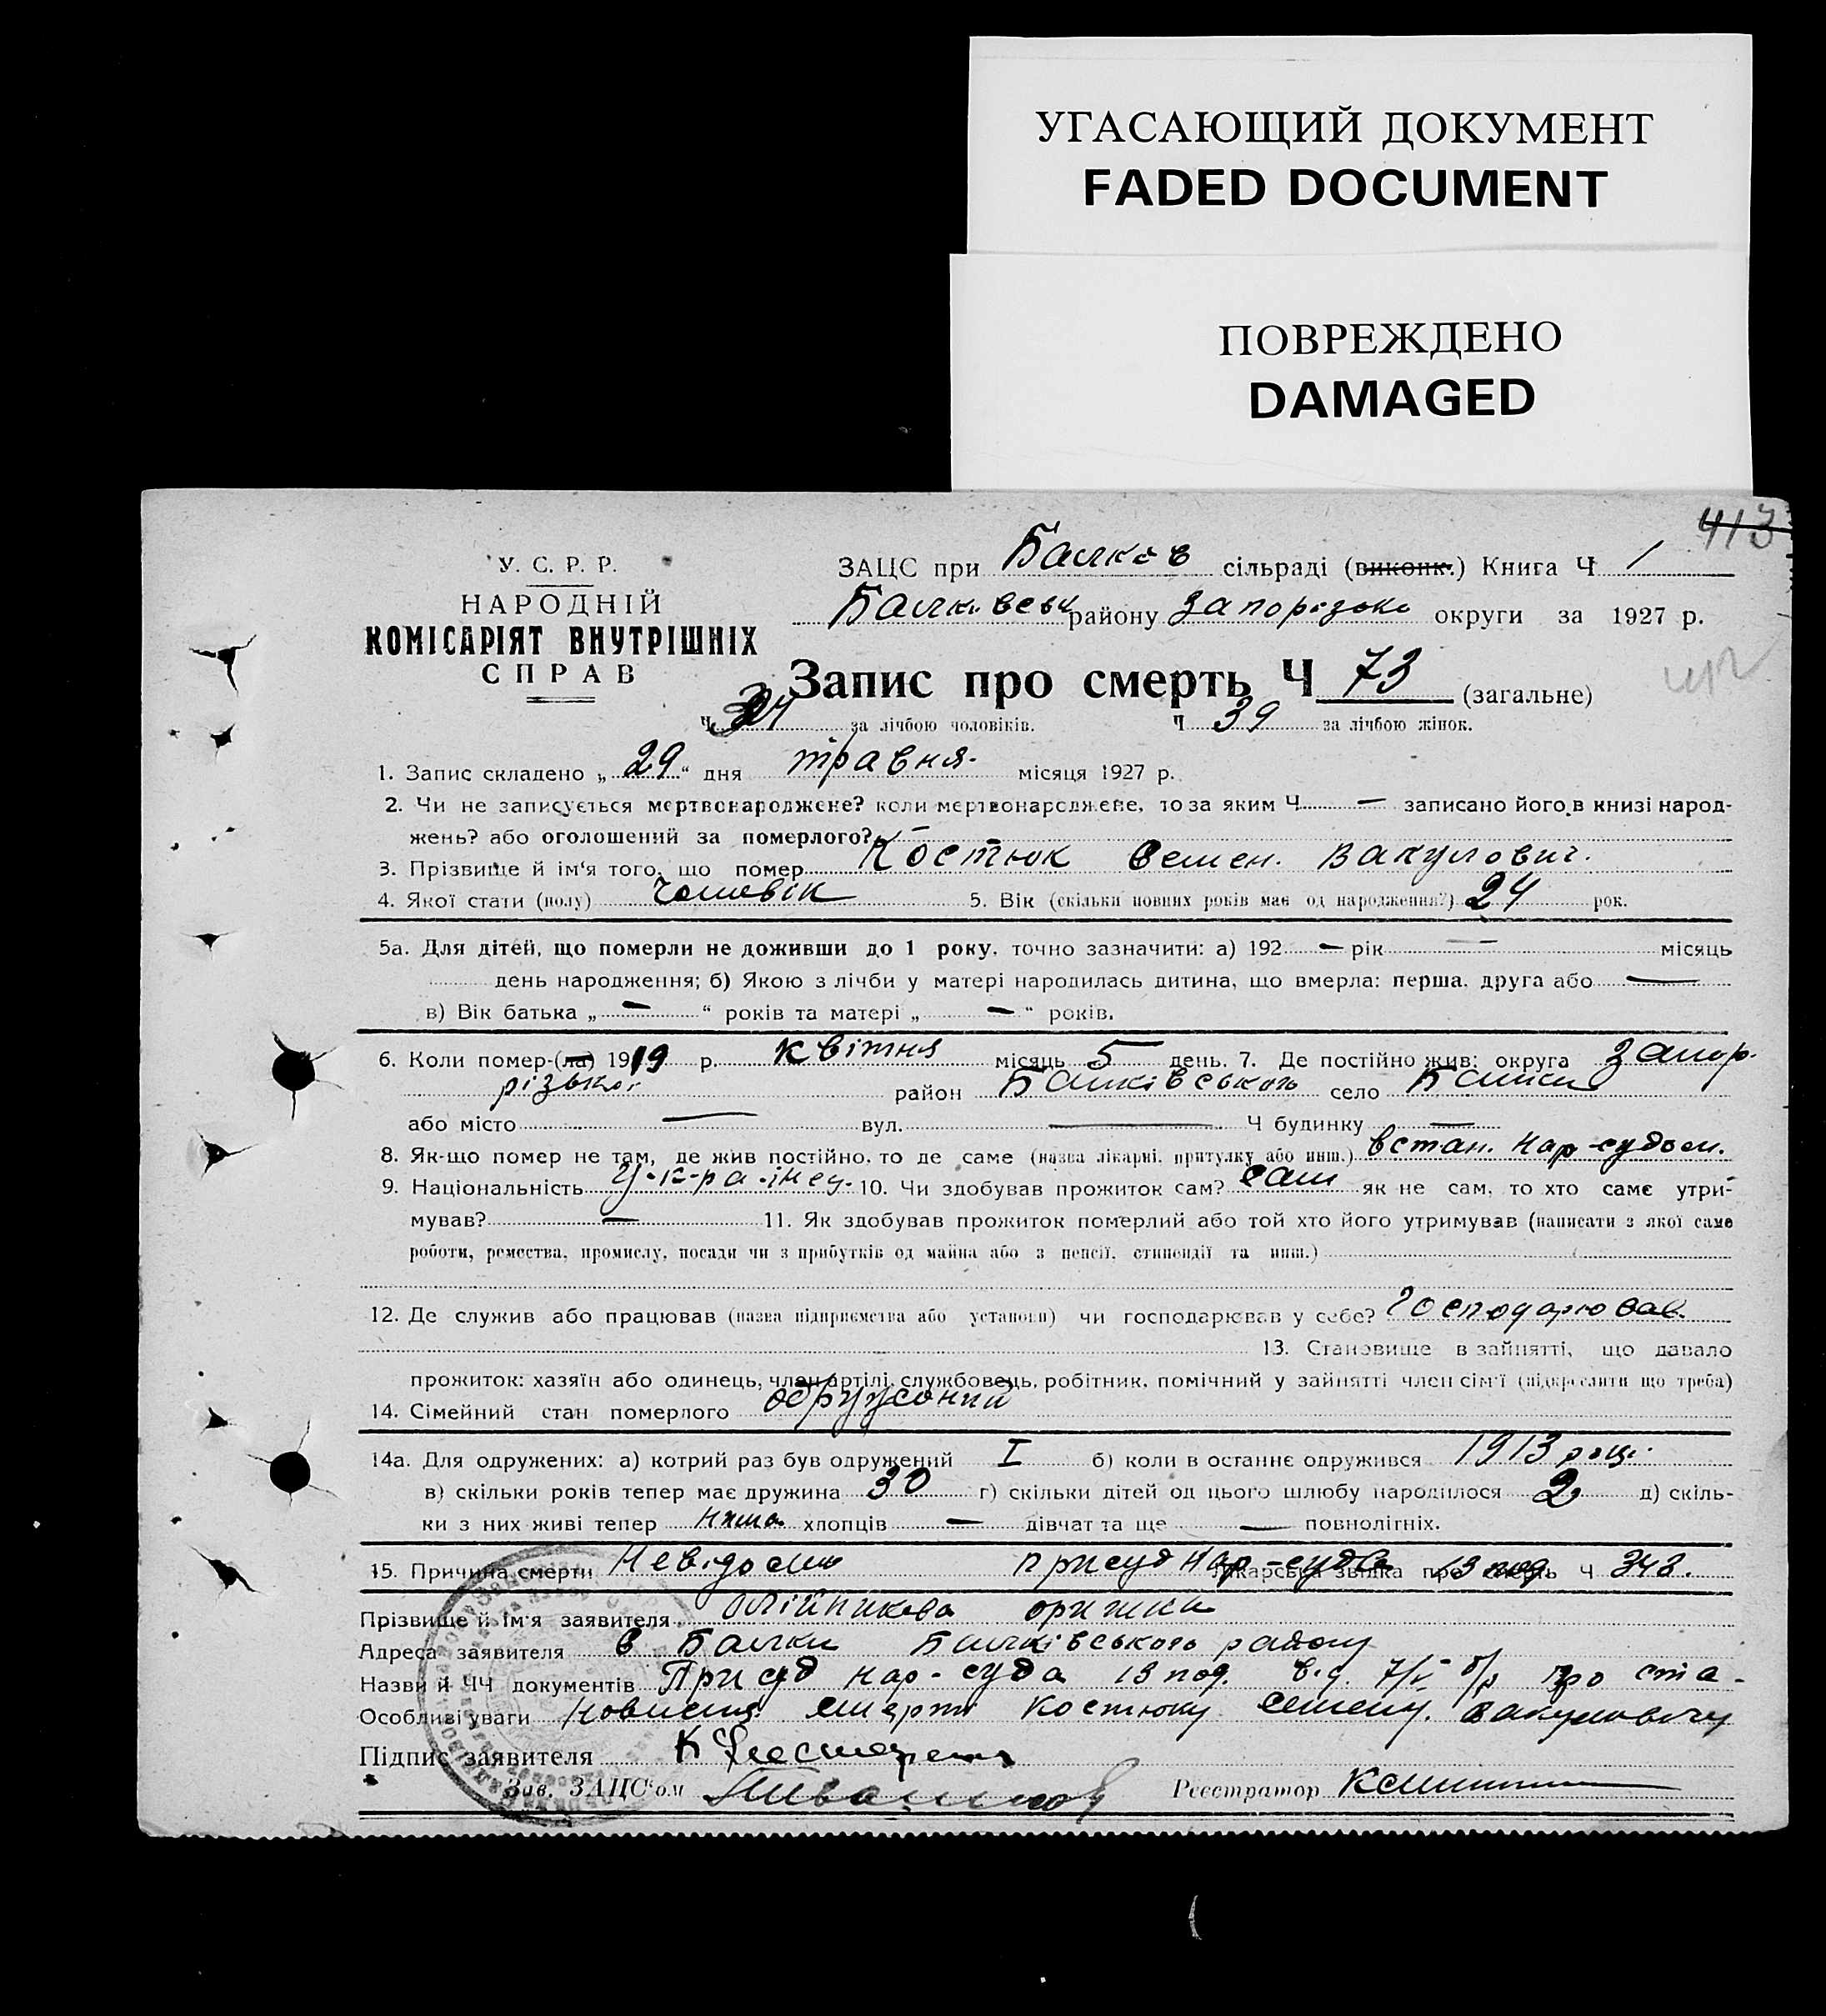 УГАСАЮЩИЙ ДОКУМЕНТ
FADED DOCUMENT
ПОВРЕЖДЕНО
DAMAGED
413
У. С. Р. Р.
НАРОДНІЙ
КОМІСАРІЯТ ВНУТРІШНІХ
СПРАВ
ЗАЦС при Балков сільраді (виконк.) Книга Ч 1
Балківськ району Запорізько округи за 1927 р.
Запис про смерть Ч 73 (загальне)
Ч 34 за лічбою чоловіків. Ч 39 за лічбою жінок.
1. Запис складено „ 29 “ дня травня. місяця 1927 р.
2. Чи не записується мертвонароджене? коли мертвонароджене, то за яким Ч — записано його в книзі народ-
жень? або оголошений за померлого? —
3. Прізвище й ім‘я того, що помер Костюк Семен. Вакулович.
4. Якої стати (полу) Чоловік 5. Вік (скільки повних років має од народження?) 24 рок.
5а. Для дітей, що померли не доживши до 1 року, точно зазначити: а) 192 — рік — місяць
день народження; б) Якою з лічби у матері народилась дитина, що вмерла: перша, друга або —
в) Вік батька „ — “ років та матері „ — “ років.
6. Коли помер-(ла) 1919 р. квітня місяць 5 день. 7. Де постійно жив: округа Запор.
різької район Балківського село Балки
або місто — вул. — Ч будинку —
8. Як-що помер не там, де жив постійно, то де саме (назва лікарні, притулку або инш.) встан. Нар-судом.
9. Національність У-к-ра-інец. 10. Чи здобував прожиток сам? сам як не сам, то хто саме утри-
мував? — 11. Як здобував прожиток померлий або той хто його утримував (написати з якої саме
роботи, ремества, промислу, посади чи з прибутків од майна або з пенсії, стипендії та инш.)
12. Де служив або працював (назва підприємства або установи) чи господарював у себе? Господарював.
13. Становище в зайнятті, що давало
прожиток: хазяїн або одинець, член артілі, службовець, робітник, помічний у зайнятті член сім‘ї (підкреслити що треба)
14. Сімейний стан померлого одружоний
14а. Для одружених: а) котрий раз був одружений I б) коли в останнє одружився 1913 році
в) скільки років тепер має дружина 30 г) скільки дітей од цього шлюбу народилося 2 д) скіль-
ки з них живі тепер Нима хлопців — дівчат та ще — повнолітніх.
15. Причина смерти Невідомо присуд Нар-суда лікарська звідка про смерть 13 под Ч 343.
Прізвище й ім‘я заявителя Олійникова
Адреса заявителя в Балки Балківського району
Назви й ЧЧ документів Присуд нар-суда 13 под. від. 7/V б/р про ста-
Особливі уваги новлення смерти Костюку Семену. Вакуловичу
Підпис заявителя
Зав. ЗАЦС‘ом Реєстратор